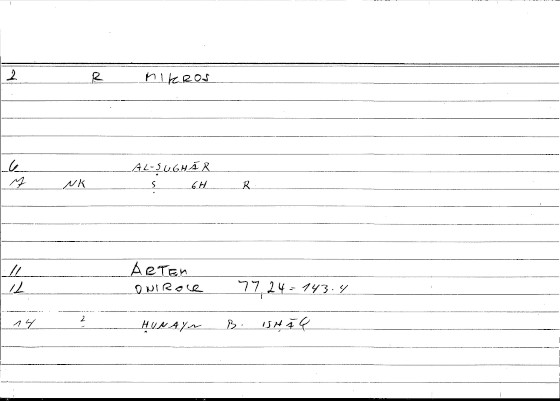 2 R MIKROS
6 AL-ṢUGHĀR
7 NK Ṣ GH R
11 ARTEM
12 ONIROCR 77,24 = 143.4
14 2 ḤUNAYN B. ISḤĀQ